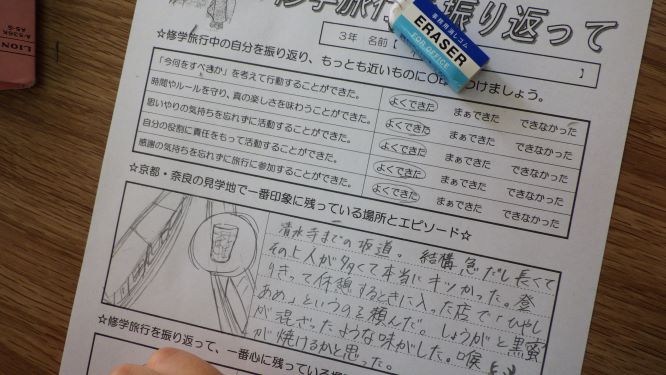 修学旅行 振り返って
3年 名前【 】
業務用消しゴム
ERASER
FOR OFFICE
LION
☆修学旅行中の自分を振り返り、もっとも近いものに○ つけましょう。
「今何をすべきか」を考えて行動することができた。 よくできた まぁできた できなかった
時間やルールを守り、真の楽しさを味わうことができた。 よくできた まぁできた できなかった
思いやりの気持ちを忘れずに活動することができた。 よくできた まぁできた できなかった
自分の役割に責任をもって活動することができた。 よくできた まぁできた できなかった
感謝の気持ちを忘れずに旅行に参加することができた。 よくできた まぁできた できなかった
☆京都・奈良の見学地で一番印象に残っている場所とエピソード☆
清水寺までの坂道。結構急だし長くて
その上人が多くて本当にキツかった。登
りきって休憩するときに入った店で「ひやし
あめ」というのを頼んだ。しょうがと黒蜜
が混ざったような味がした。喉
が焼けるかと思った。
☆修学旅行を振り返って、一番心に残っている場